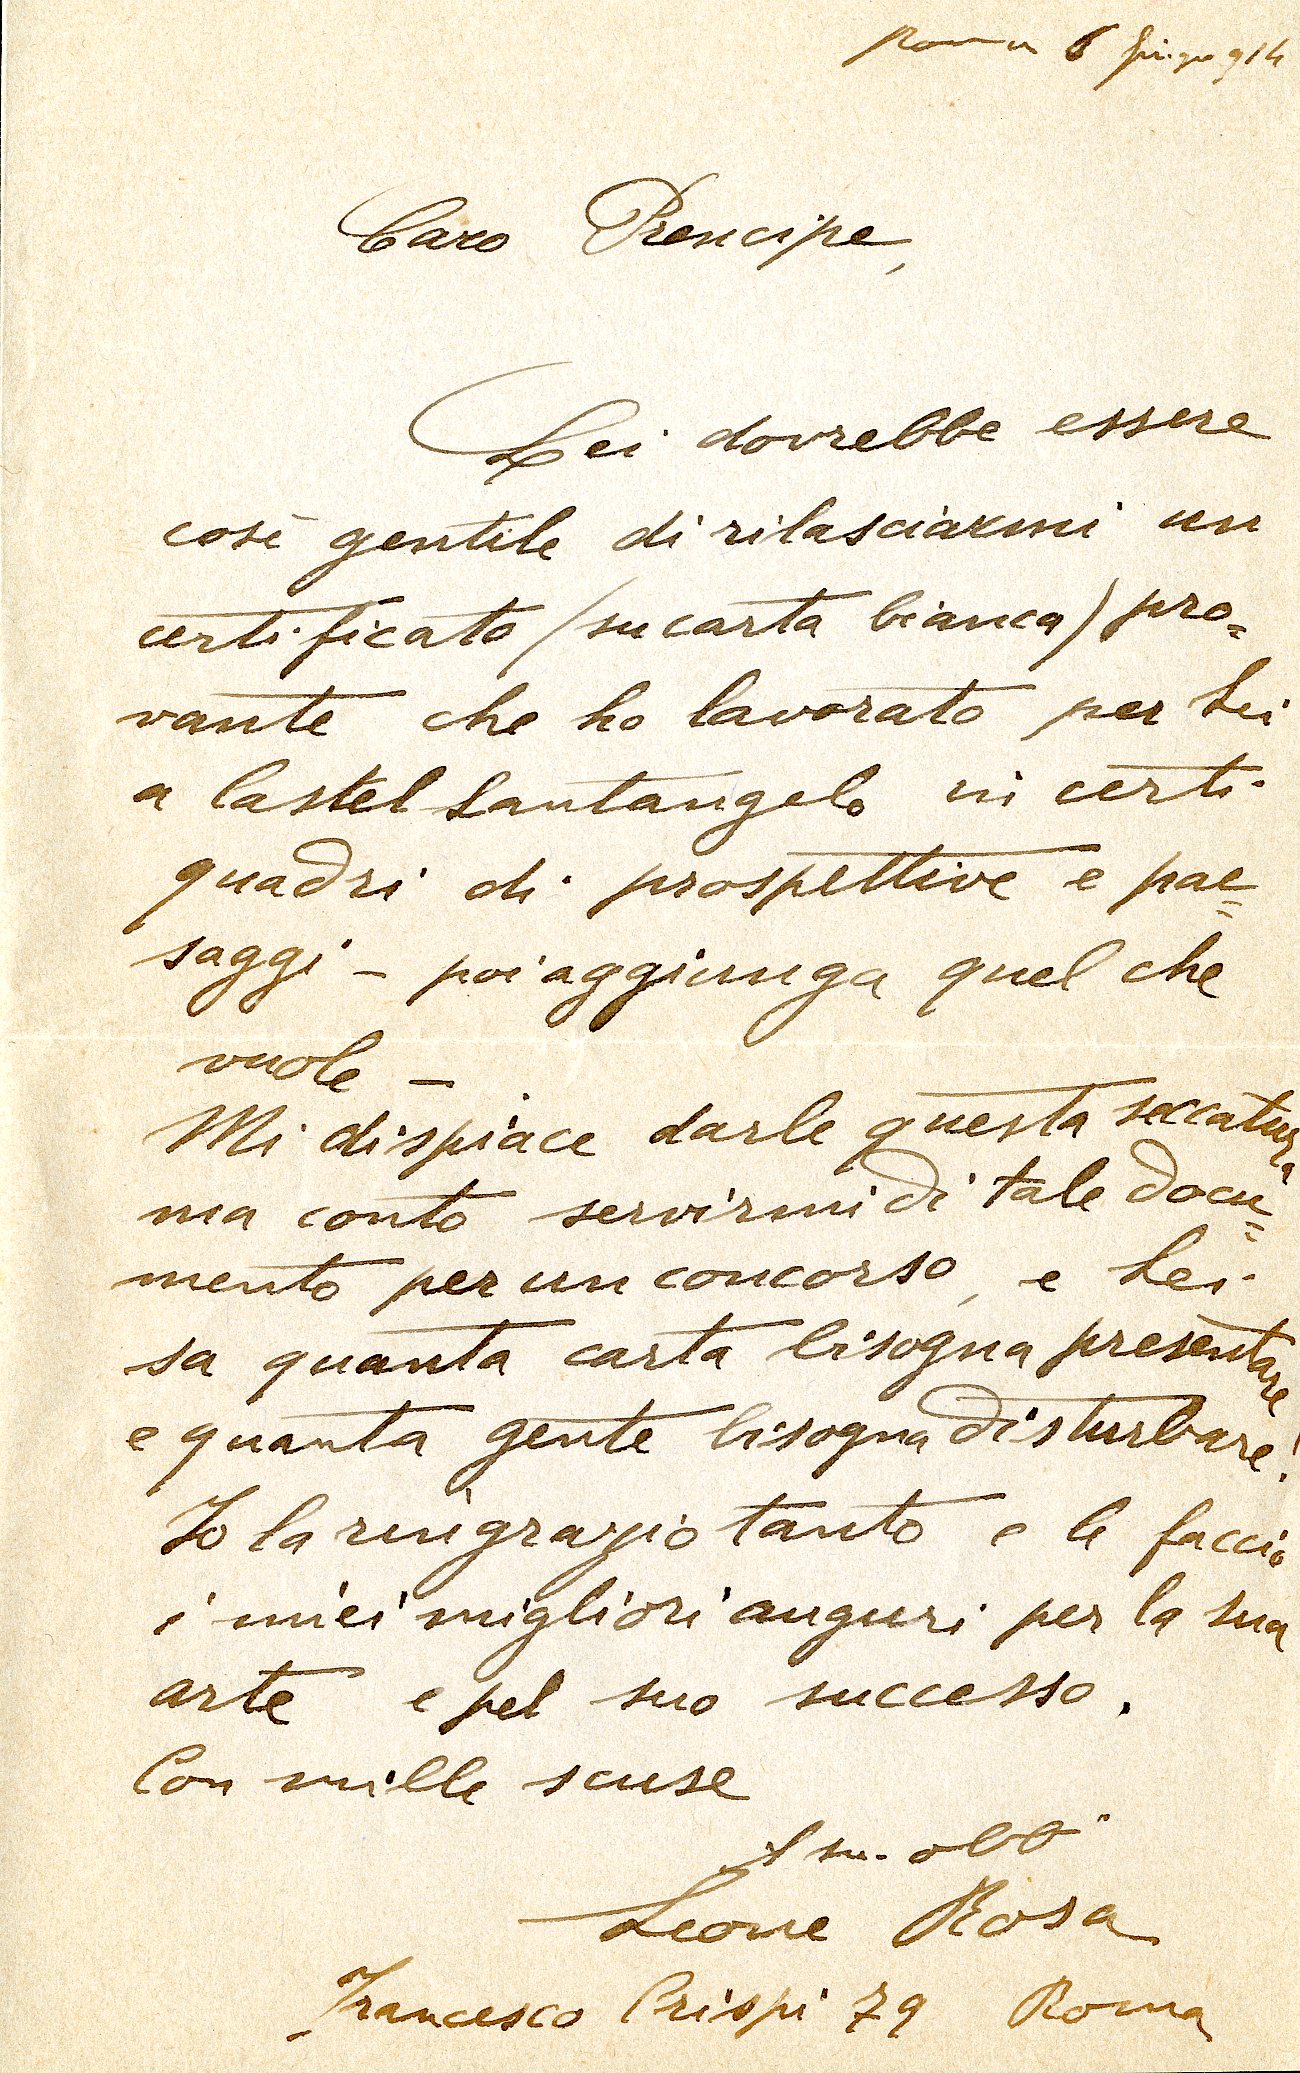 Roma 6 giugno 914
Caro Prencipe,
Lei dovrebbe essere
così gentile di rilasciarmi un
certificato (su carta bianca) pro=
vante che ho lavorato per Lei
a Castel Santangelo in certi
quadri di prospettive e pae=
saggi - poi aggiunga quel che
vuole -
Mi dispiace darle questa seccatura
ma conto servirmi di tale docu=
mento per un concorso, e Lei
sa quanta carta bisogna presentare
e quanta gente bisogna disturbare!
Io la ringrazio tanto e le faccio
i miei migliori auguri per la sua
arte e pel suo successo.
Con mille scuse
il su. obb
Leone Rosa
Francesco Crispi 79 Roma